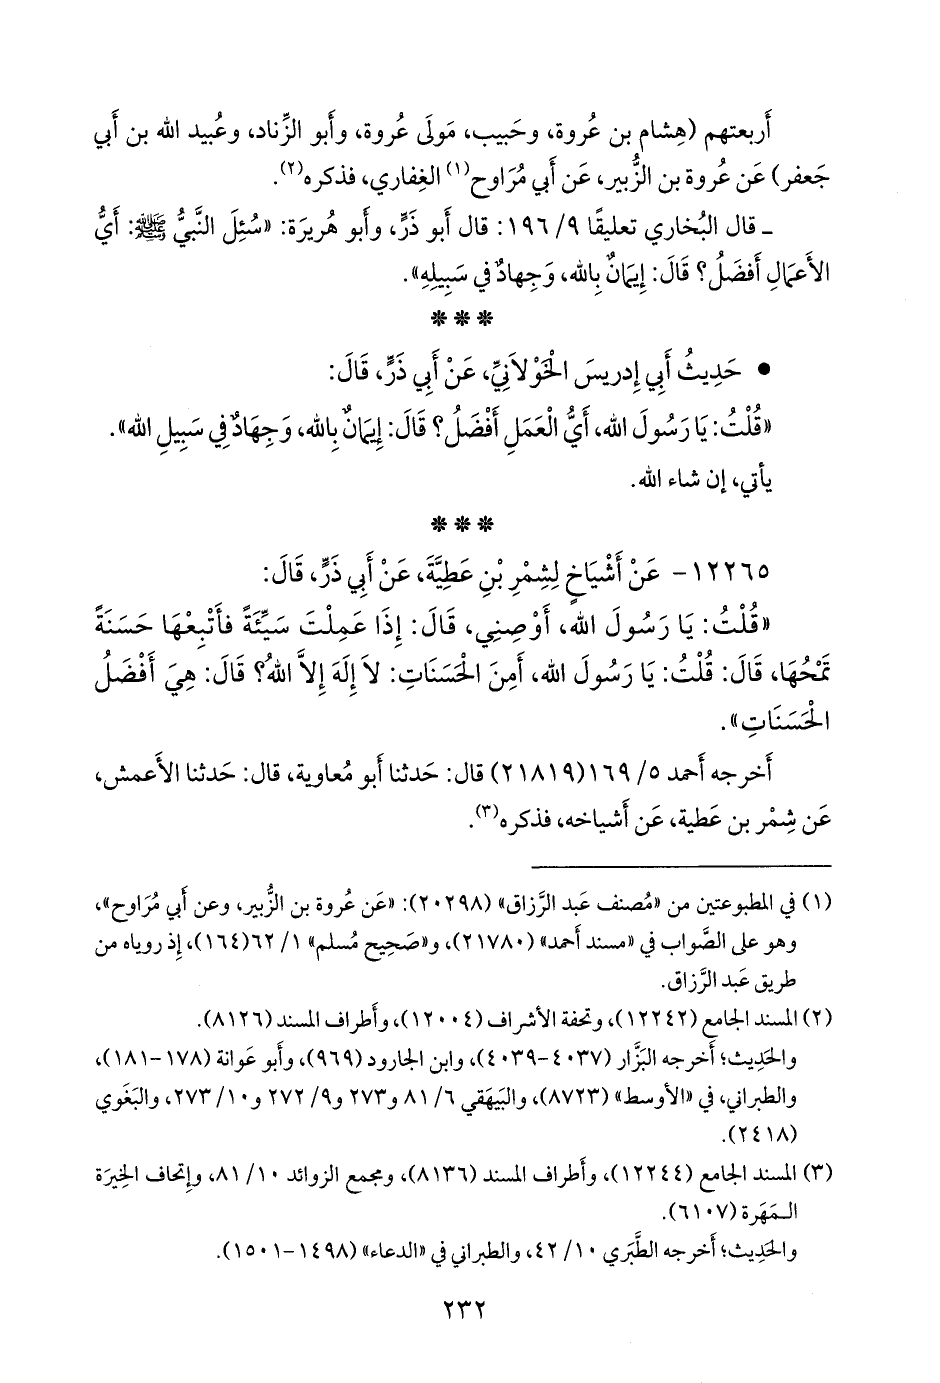 أَربعتهم (هِشام بن عُروة، وحَبيب، مَولَى عُروة، وأَبو الزِّناد، وعُبيد الله بن أَبي
جَعفر) عَن عُروة بن الزُّبير، عَن أَبي مُرَاوح(١) الغِفاري، فذكره(٢).
ـ قال البُخاري تعليقًا ٩/ ١٩٦: قال أَبو ذَرٍّ، وأَبو هُريرَة: «سُئِلَ النَّبيُّ ﷺ: أَيُّ
الأَعمَالِ أَفضَلُ؟ قَالَ: إِيمَانٌ بِالله، وَجِهادٌ في سَبِيلِهِ».
* * *
• حَدِيثُ أَبي إِدريسَ الخَوْلَانِيِّ، عَنْ أَبِي ذَرٍّ، قَالَ:
«قُلْتُ: يَا رَسُولَ الله، أَيُّ الْعَمَلِ أَفْضَلُ؟ قَالَ: إِيمَانٌ بِالله، وَجِهَادٌ فِي سَبِيلِ الله».
يأتي، إن شاء الله.
* * *
١٢٢٦٥- عَنْ أَشْيَاخٍ لِشِمْرِ بْنِ عَطِيَّةَ، عَنْ أَبِي ذَرٍّ، قَالَ:
«قُلْتُ: يَا رَسُولَ الله، أَوْصِنِي، قَالَ: إِذَا عَمِلْتَ سَيِّئَةً فَأَتْبِعْهَا حَسَنَةً
تَمْحُهَا، قَالَ: قُلْتُ: يَا رَسُولَ الله، أَمِنَ الحَسَنَاتِ: لاَ إِلَهَ إِلاَّ اللهُ؟ قَالَ: هِيَ أَفْضَلُ
الْحَسَنَاتِ».
أَخرجه أَحمد ٥/ ١٦٩(٢١٨١٩) قال: حَدثنا أَبو مُعاوية، قال: حَدثنا الأَعمش،
عَن شِمْر بن عَطية، عَن أَشياخه، فذكره(٣).
(١) في المطبوعتين من «مُصنف عَبد الرَّزاق» (٢٠٢٩٨): «عَن عُروة بن الزُّبير، وعن أَبي مُرَاوح»،
وهو على الصَّواب في «مسند أَحمد» (٢١٧٨٠)، و«صَحيح مُسلم» ١/ ٦٢(١٦٤)، إِذ روياه من
طريق عَبد الرَّزاق.
(٢) المسند الجامع (١٢٢٤٢)، وتحفة الأشراف (١٢٠٠٤)، وأَطراف المسند (٨١٢٦).
والحَدِيث؛ أَخرجه البَزَّار (٤٠٣٧-٤٠٣٩)، وابن الجارود (٩٦٩)، وأَبو عَوانة (١٧٨-١٨١)،
والطبراني، في «الأوسط» (٨٧٢٣)، والبَيهَقي ٦/ ٨١ و٢٧٣ و٩/ ٢٧٢ و١٠/ ٢٧٣، والبَغَوي
(٢٤١٨).
(٣) المسند الجامع (١٢٢٤٤)، وأَطراف المسند (٨١٣٦)، ومجمع الزوائد ١٠/ ٨١، وإِتحاف الخِيرَة
المَهَرة (٦١٠٧).
والحَدِيث؛ أَخرجه الطَّبَري ١٠/ ٤٢، والطبراني في «الدعاء» (١٤٩٨-١٥٠١).
٢٣٢